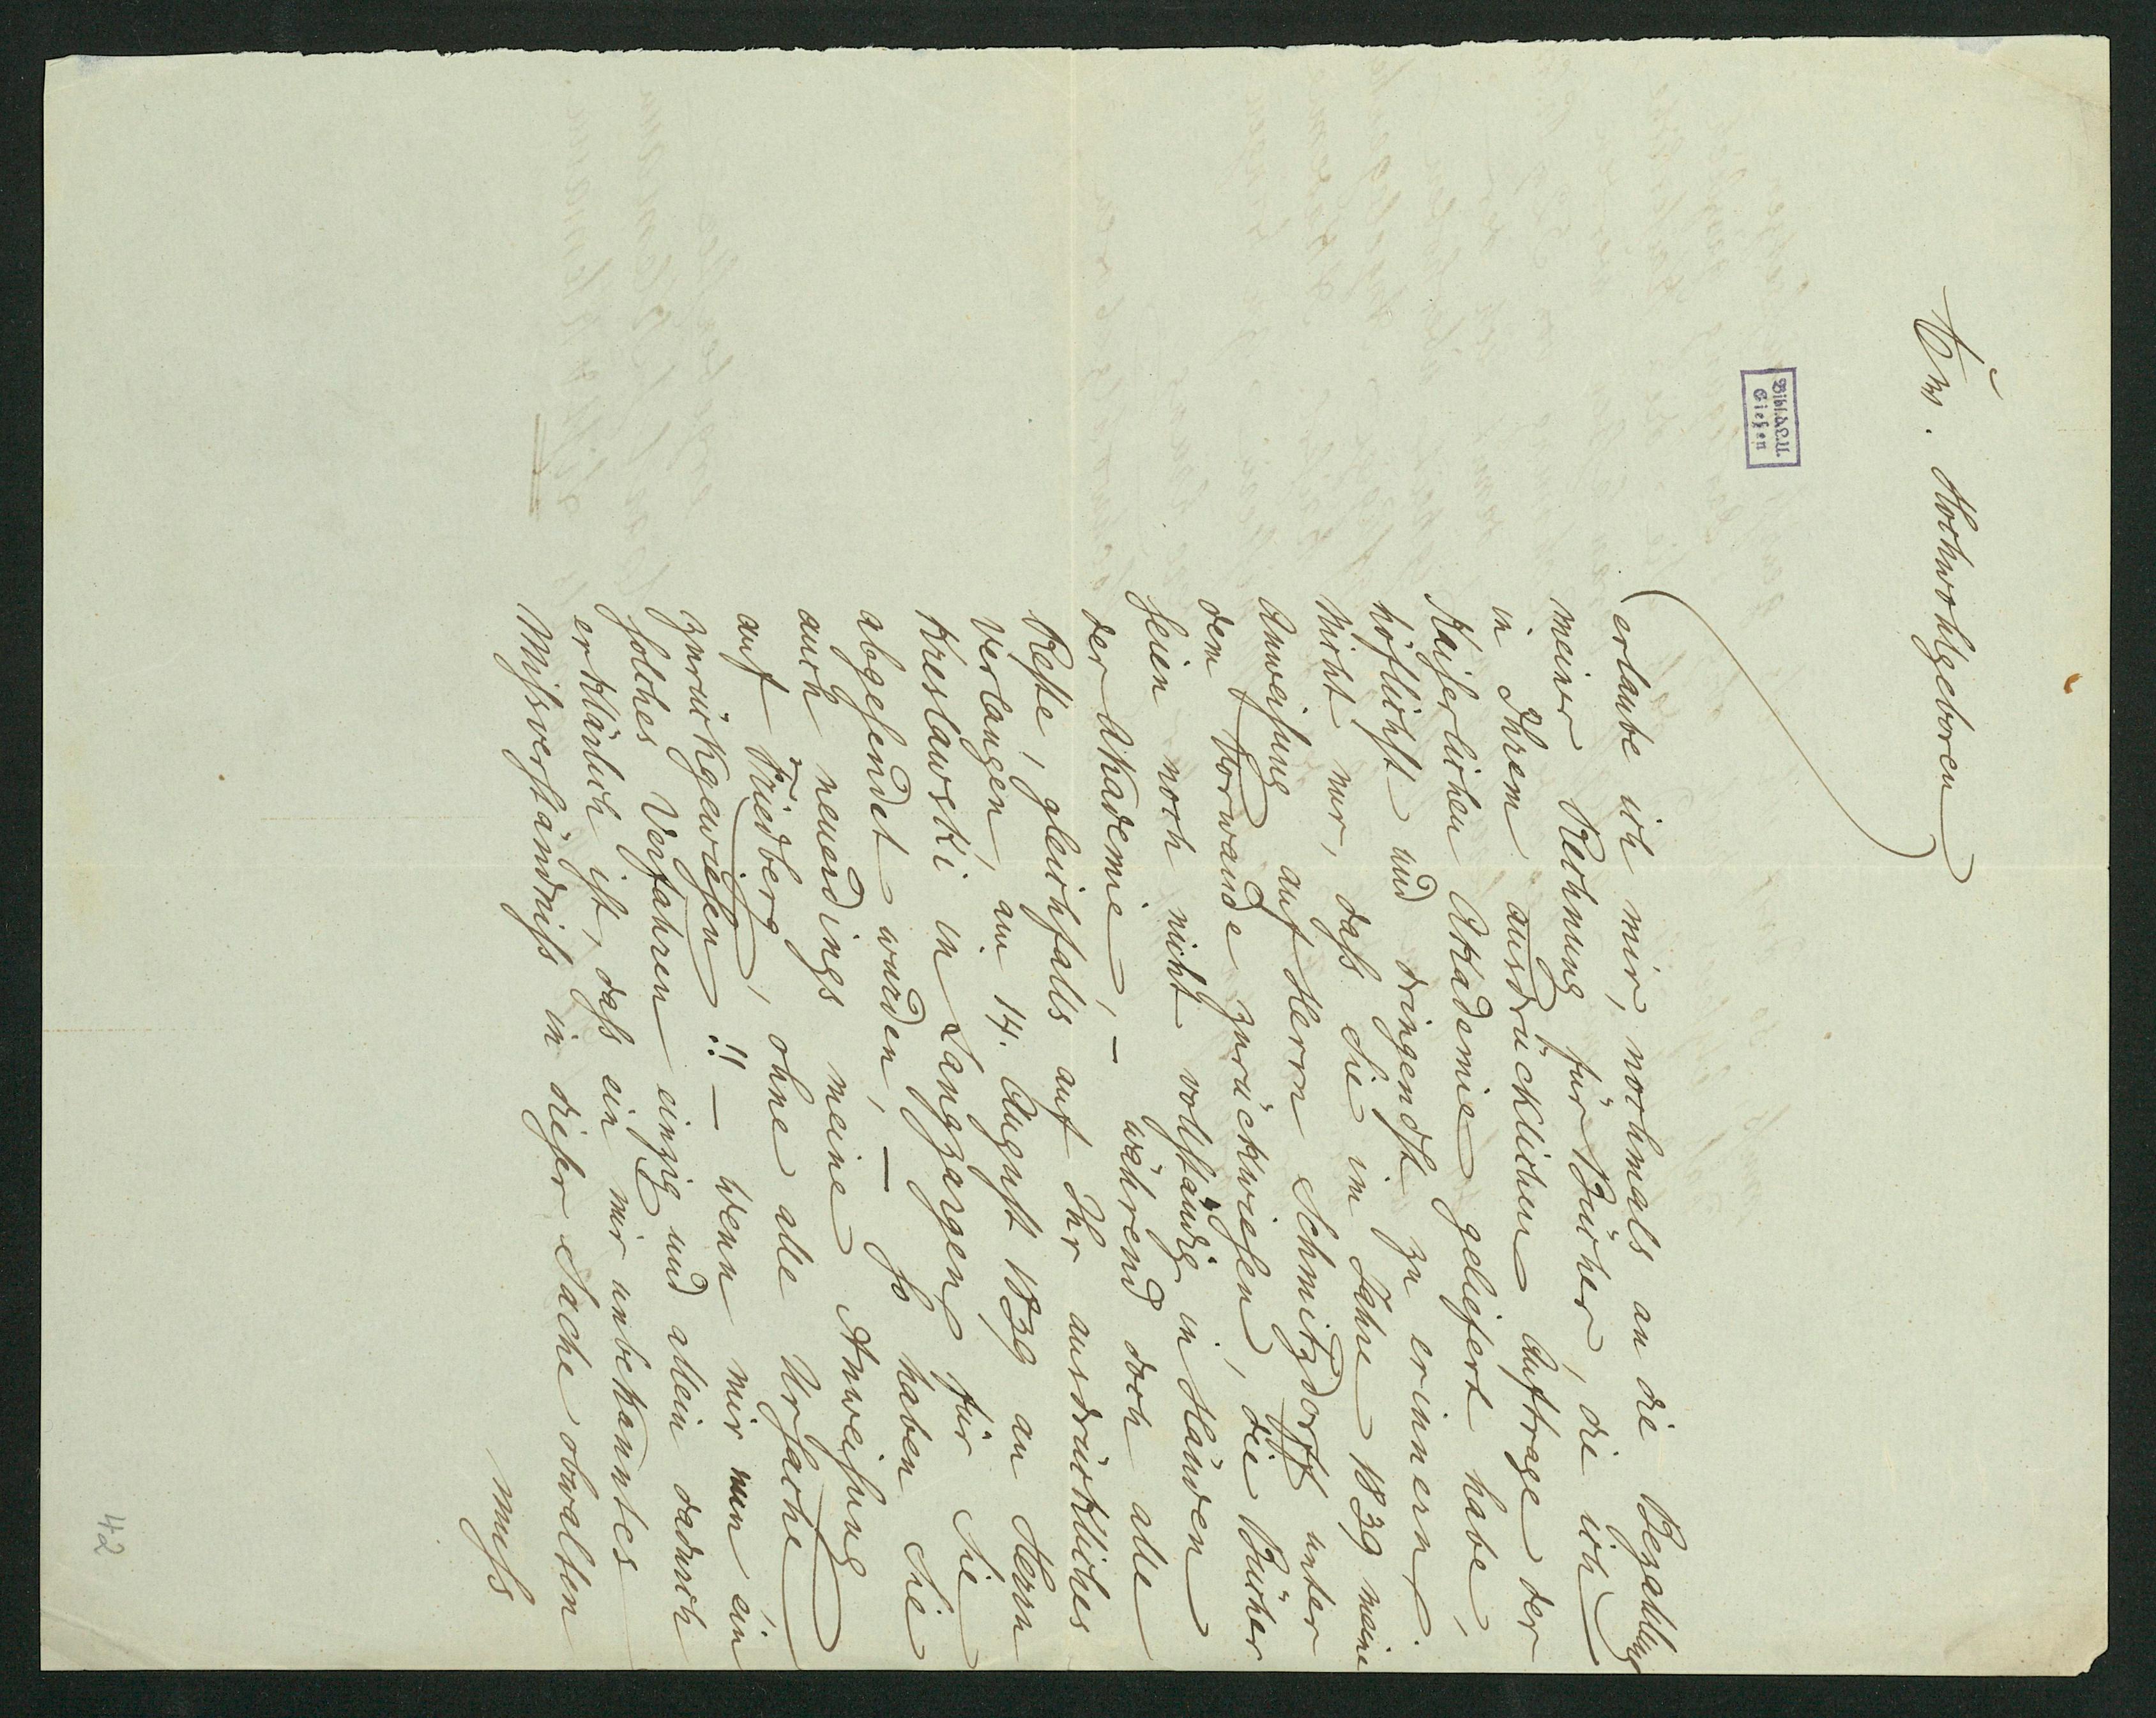 Ew. Hochwohlgeboren
Bibl. d. Univ.
Gießen
erlaube ich mir, nochmals an die Bezahlung
meiner Rechnung für Bücher, die ich
in Ihrem ausdrücklichen Auftrage der
Kaiserlichen Akademie geliefert habe,
höflichst und dringendst zu erinnern.
Nicht nur, daß Sie im Jahre 1839 meine
Anweisung auf Herrn Schmitzdorff unter
dem Vorwande zurückwiesen, die Bücher
seien noch nicht vollständig in Händen
der Akademie, – während doch alle
Reste, gleichfalls auf Ihr ausdrückliches
Verlangen, am 14. August 1839 an Herrn
Kreslawski in Langzargen für Sie
abgesendet wurden, – so haben Sie
auch neuerdings meine Anweisung
auf Friedberg, ohne alle Ursache
zurückgewiesen!! – wenn mir nun ein
solches Verfahren einzig und allein dadurch
erklärlich ist, daß ein mir unbekanntes
Mißverständniß in dieser Sache obwalten
muß
42